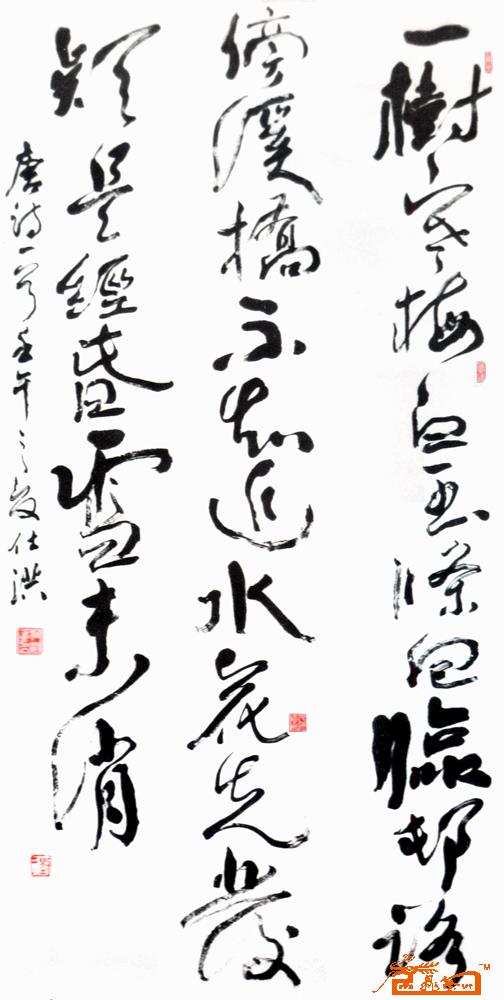 一樹寒梅白玉條回臨邨路
傍溪橋不知近水花先發
疑是經昏雪未消
唐詩一首壬午之夏仕洪